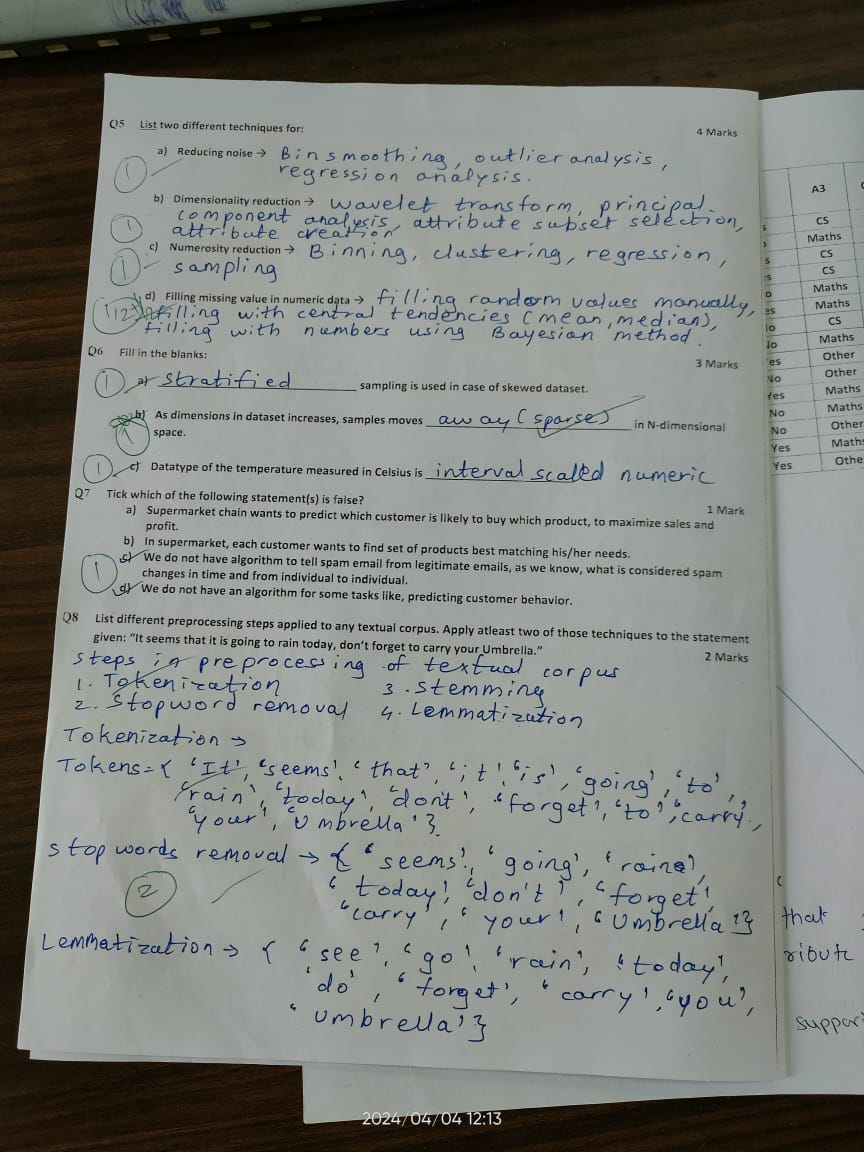 Q5 List two different techniques for:
4 Marks
a) Reducing noise → Bin smoothing, outlier analysis,
regression analysis.
1
b) Dimensionality reduction → wavelet transform, principal
component analysis, attribute subset selection,
attribute creation
1
c) Numerosity reduction → Binning, clustering, regression,
sampling
1
d) Filling missing value in numeric data → filling random values manually,
filling with central tendencies (mean, median),
filling with numbers using Bayesian method.
Q6 Fill in the blanks:
3 Marks
1
a) stratified sampling is used in case of skewed dataset.
b) As dimensions in dataset increases, samples moves away (sparse) in N-dimensional
space.
1
1
c) Datatype of the temperature measured in Celsius is interval scaled numeric
Q7 Tick which of the following statement(s) is false?
1 Mark
a) Supermarket chain wants to predict which customer is likely to buy which product, to maximize sales and
profit.
b) In supermarket, each customer wants to find set of products best matching his/her needs.
c) We do not have algorithm to tell spam email from legitimate emails, as we know, what is considered spam
changes in time and from individual to individual.
1
d) We do not have an algorithm for some tasks like, predicting customer behavior.
Q8 List different preprocessing steps applied to any textual corpus. Apply atleast two of those techniques to the statement
given: "It seems that it is going to rain today, don't forget to carry your Umbrella."
2 Marks
Steps in preprocessing of textual corpus
1. Tokenization 3. Stemming
2. Stopword removal 4. Lemmatization
Tokenization →
Tokens = { 'It', 'seems', 'that', 'it', 'is', 'going', 'to',
'rain', 'today', 'don't', 'forget', 'to', 'carry',
'your', 'Umbrella' }.
Stop words removal → { 'seems', 'going', 'raine',
'today', 'don't', 'forget',
'carry', 'your', 'Umbrella' }
2
Lemmatization → { 'see', 'go', 'rain', 'today',
'do', 'forget', 'carry', 'you',
'umbrella' }
A3
CS
Maths
CS
CS
Maths
Maths
CS
Maths
Other
No Other
Yes Maths
No Maths
No Other
Yes Maths
Yes Othe
that
suppor
2024/04/04 12:13